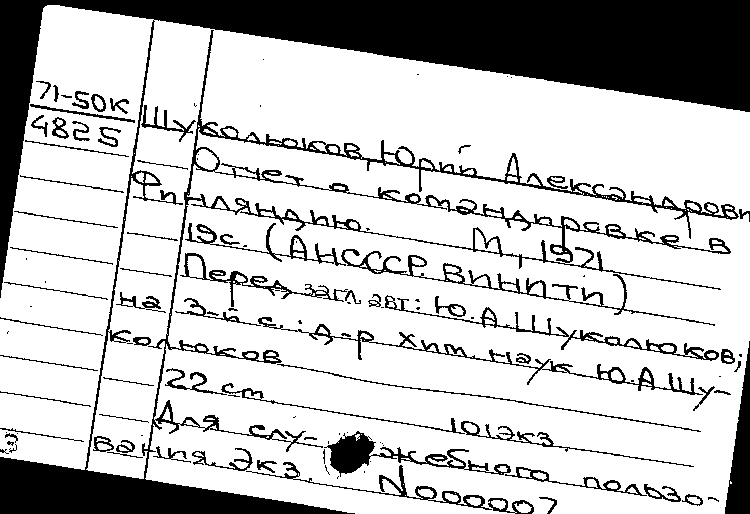 71-50к
4825
Шуколюков, Юрий Александрови
Отчет о командировке в
Финляндию. М., 1971.
19с. (АНСССР. ВИНИТИ)
Перед загл. авт: Ю.А.Шуколюков;
на 3-й с.: д-р хим. наук Ю.А.Шу-
колюков
22 см.
101экз.
Для слу- жебного пользо-
вания. Экз. N000007